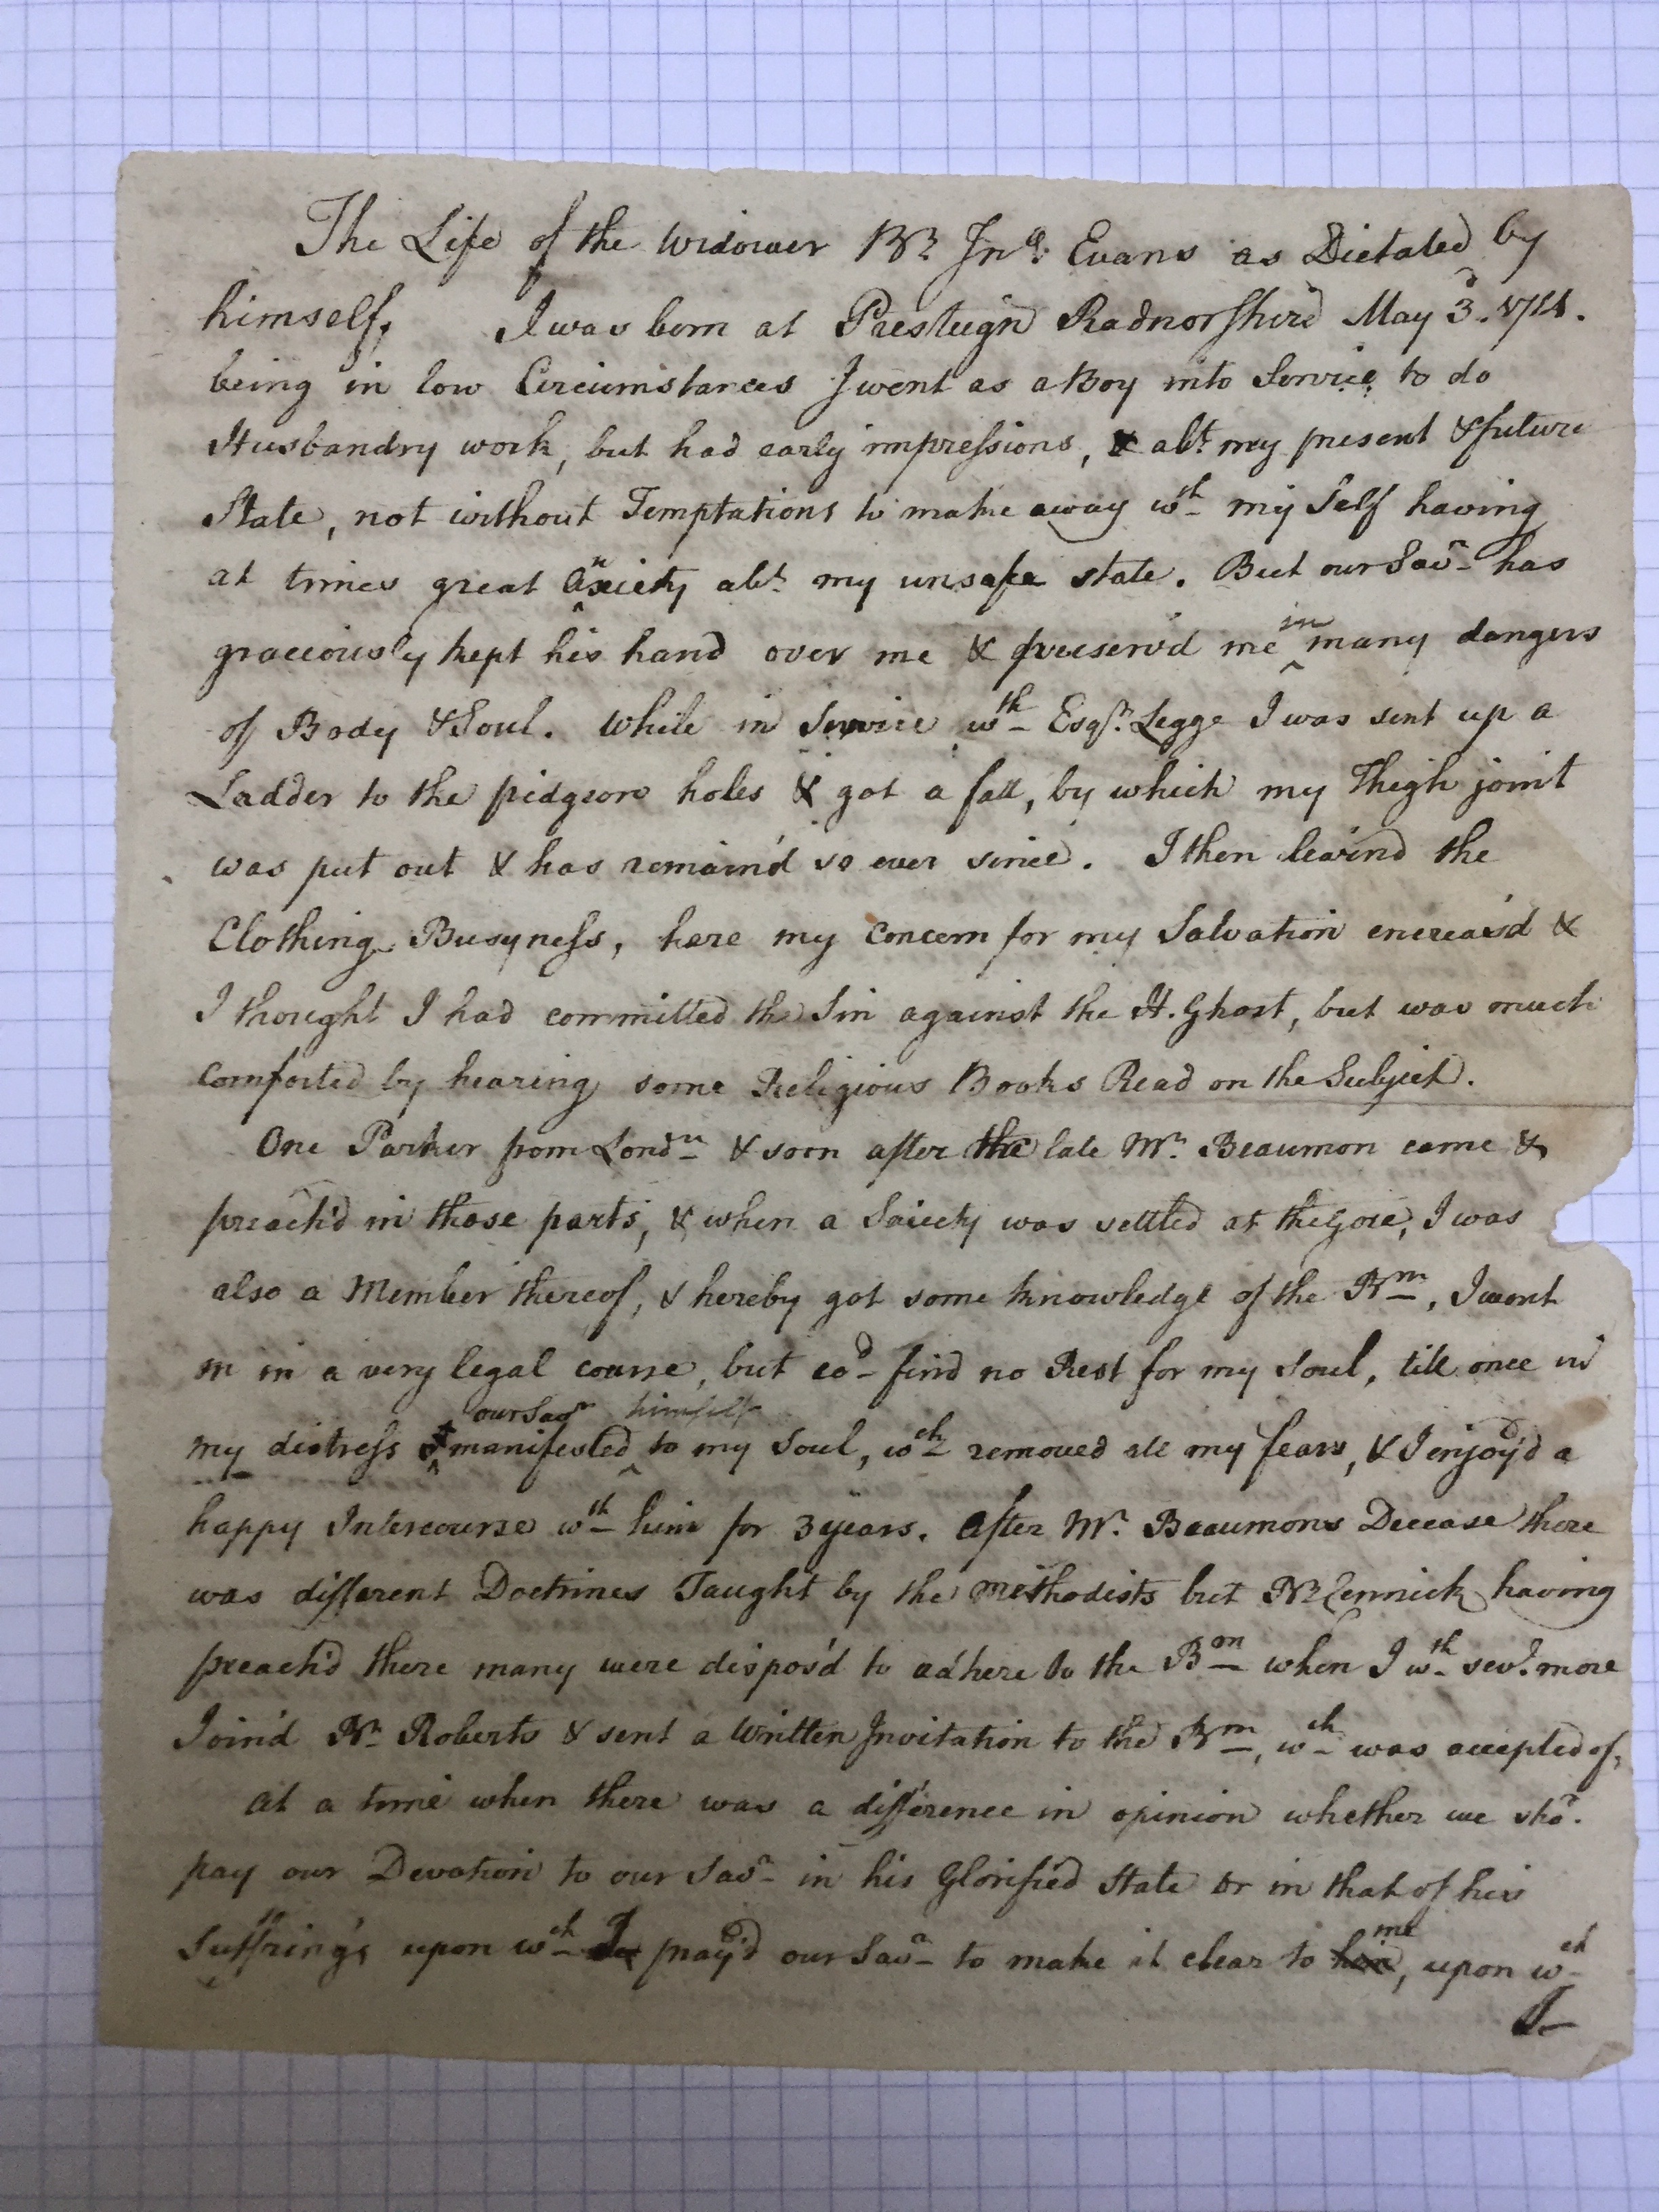 The Life of the Widower Br. Jno. Evans as Dictated by
himself. I was born at Presteign Radnorshire May 3d. 1714.
being in low Circumstances I went as a Boy into Service to do
Husbandry work, but had early impressions, & abt. my present & future
State, not without Temptations to make away wth my Self having
at times great Anxiety abt. my unsafe state. But our Savr has
graciously kept his hand over me & preserv'd me in many dangers
of Body & Soul. While in Service wth Esqr. Legge I was sent up a
Ladder to the pidgeon holes & got a fall, by which my Thigh joint
was put out & has remain'd so ever since. I then learnd the
Clothing Busyness, here my Concern for my Salvation encreas'd &
I thought I had committed the Sin against the H. Ghost, but was much
comforted by hearing some Religious Books Read on the Subject.
One Parker from Londn & soon after the late Mr. Beaumon came &
preach'd in those parts, & when a Saciety was settled at the Gore, I was
also a Member thereof, & hereby got some knowledge of the Brn, I went
on in a very legal course, but cod find no Rest for my Soul, till once in
my distress our Savr manifested himself to my Soul, wch removed all my fears, & I enjoy'd a
happy Intercourse wth him for 3 years. After Mr. Beaumons Decease there
was different Doctrines Taught by the Methodists but Br. Cennick having
preach'd there many were dispos'd to adhere to the Brn when I wth sevl. more
Join'd Br. Roberts & sent a Written Invitation to the Brn, wch was accepted of,
at a time when there was a difference in opinion whether we shod.
pay our Devotion to our Savr in his Glorified State or in that of his
Suffring's upon wch I pray'd our Savr to make it clear to me, upon wch
I